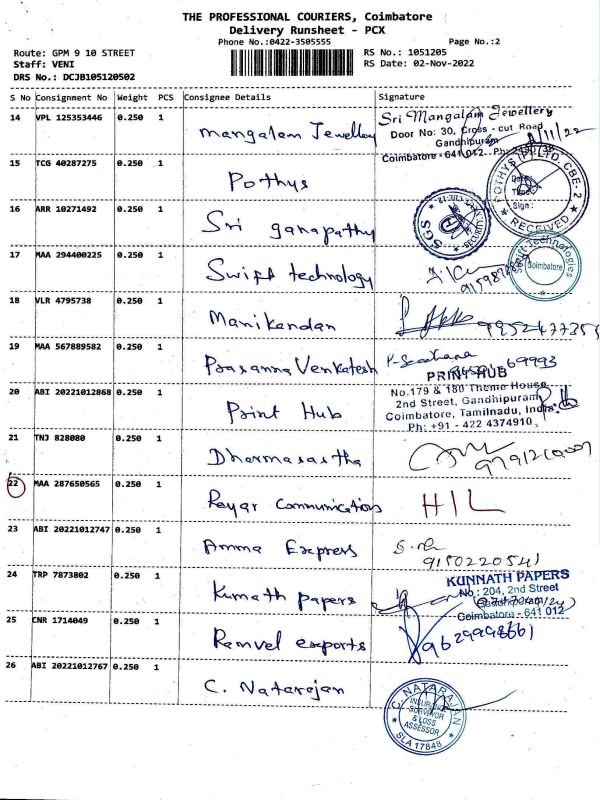 THE PROFESSIONAL COURIERS, Coimbatore
Delivery Runsheet - PCX
Phone No.:0422-3505555
Page No.:2
Route: GPM 9 10 STREET
Staff: VENI
DRS No.: DCJB105120502
RS No.: 1051205
RS Date: 02-Nov-2022
S No Consignment No Weight PCS Consignee Details Signature
14 VPL 125353446 0.250 1
Mangalam Jewellery
Sri Mangalam Jewellery
Door No: 30, Cross - cut Road
Gandhipuram
Coimbatore - 641 012.
15 TCG 40287275 0.250 1
Pothys
POTHYS (P) LTD, CBE-2
Date:
Time:
Sign:
RECEIVED
16 ARR 10271492 0.250 1
Sri ganapathy
SGS
17 MAA 294400225 0.250 1
Swift technology
Swift Technologies
Coimbatore
18 VLR 4795738 0.250 1
Manikandan
19 MAA 567889582 0.250 1
Prasanna Venkatesh
20 ABI 20221012868 0.250 1
Print Hub
PRINT HUB
No.179 & 180 Theme House
2nd Street, Gandhipuram
Coimbatore, Tamilnadu, India.
Ph: +91 - 422 4374910
21 TNJ 828080 0.250 1
Dharmasastha
22 MAA 287650565 0.250 1
Reyar Communications
H/L
23 ABI 20221012747 0.250 1
Amma Express
9150220541
24 TRP 7873802 0.250 1
Kunnath papers
KUNNATH PAPERS
No : 204, 2nd Street
Gandhipuram
Coimbatore - 641 012
25 CNR 1714049 0.250 1
Ramvel exports
9629998661
26 ABI 20221012767 0.250 1
C. Natarajan
C. NATARAJAN
INSURANCE
SURVEYOR
& LOSS
ASSESSOR
SLA 17848